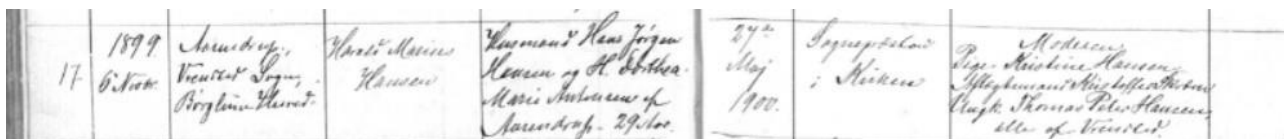 17.
1899
6 Novbr.
Aarendrup,
Vrensted Sogn,
Børglum Herred.
Harald Marius
Hansen
Husmand Hans Jørgen
Hansen og H. Dorthea
Marie Antonsen af
Aarendrup. 29 Aar.
27de
Maj
1900.
Sognepræsten
i Kirken
Moderen
Pige. Kristine Hansen,
Aftægtsmand Kristoffer
Ungk. Thomas Peter Hansen,
alle af Vrensted